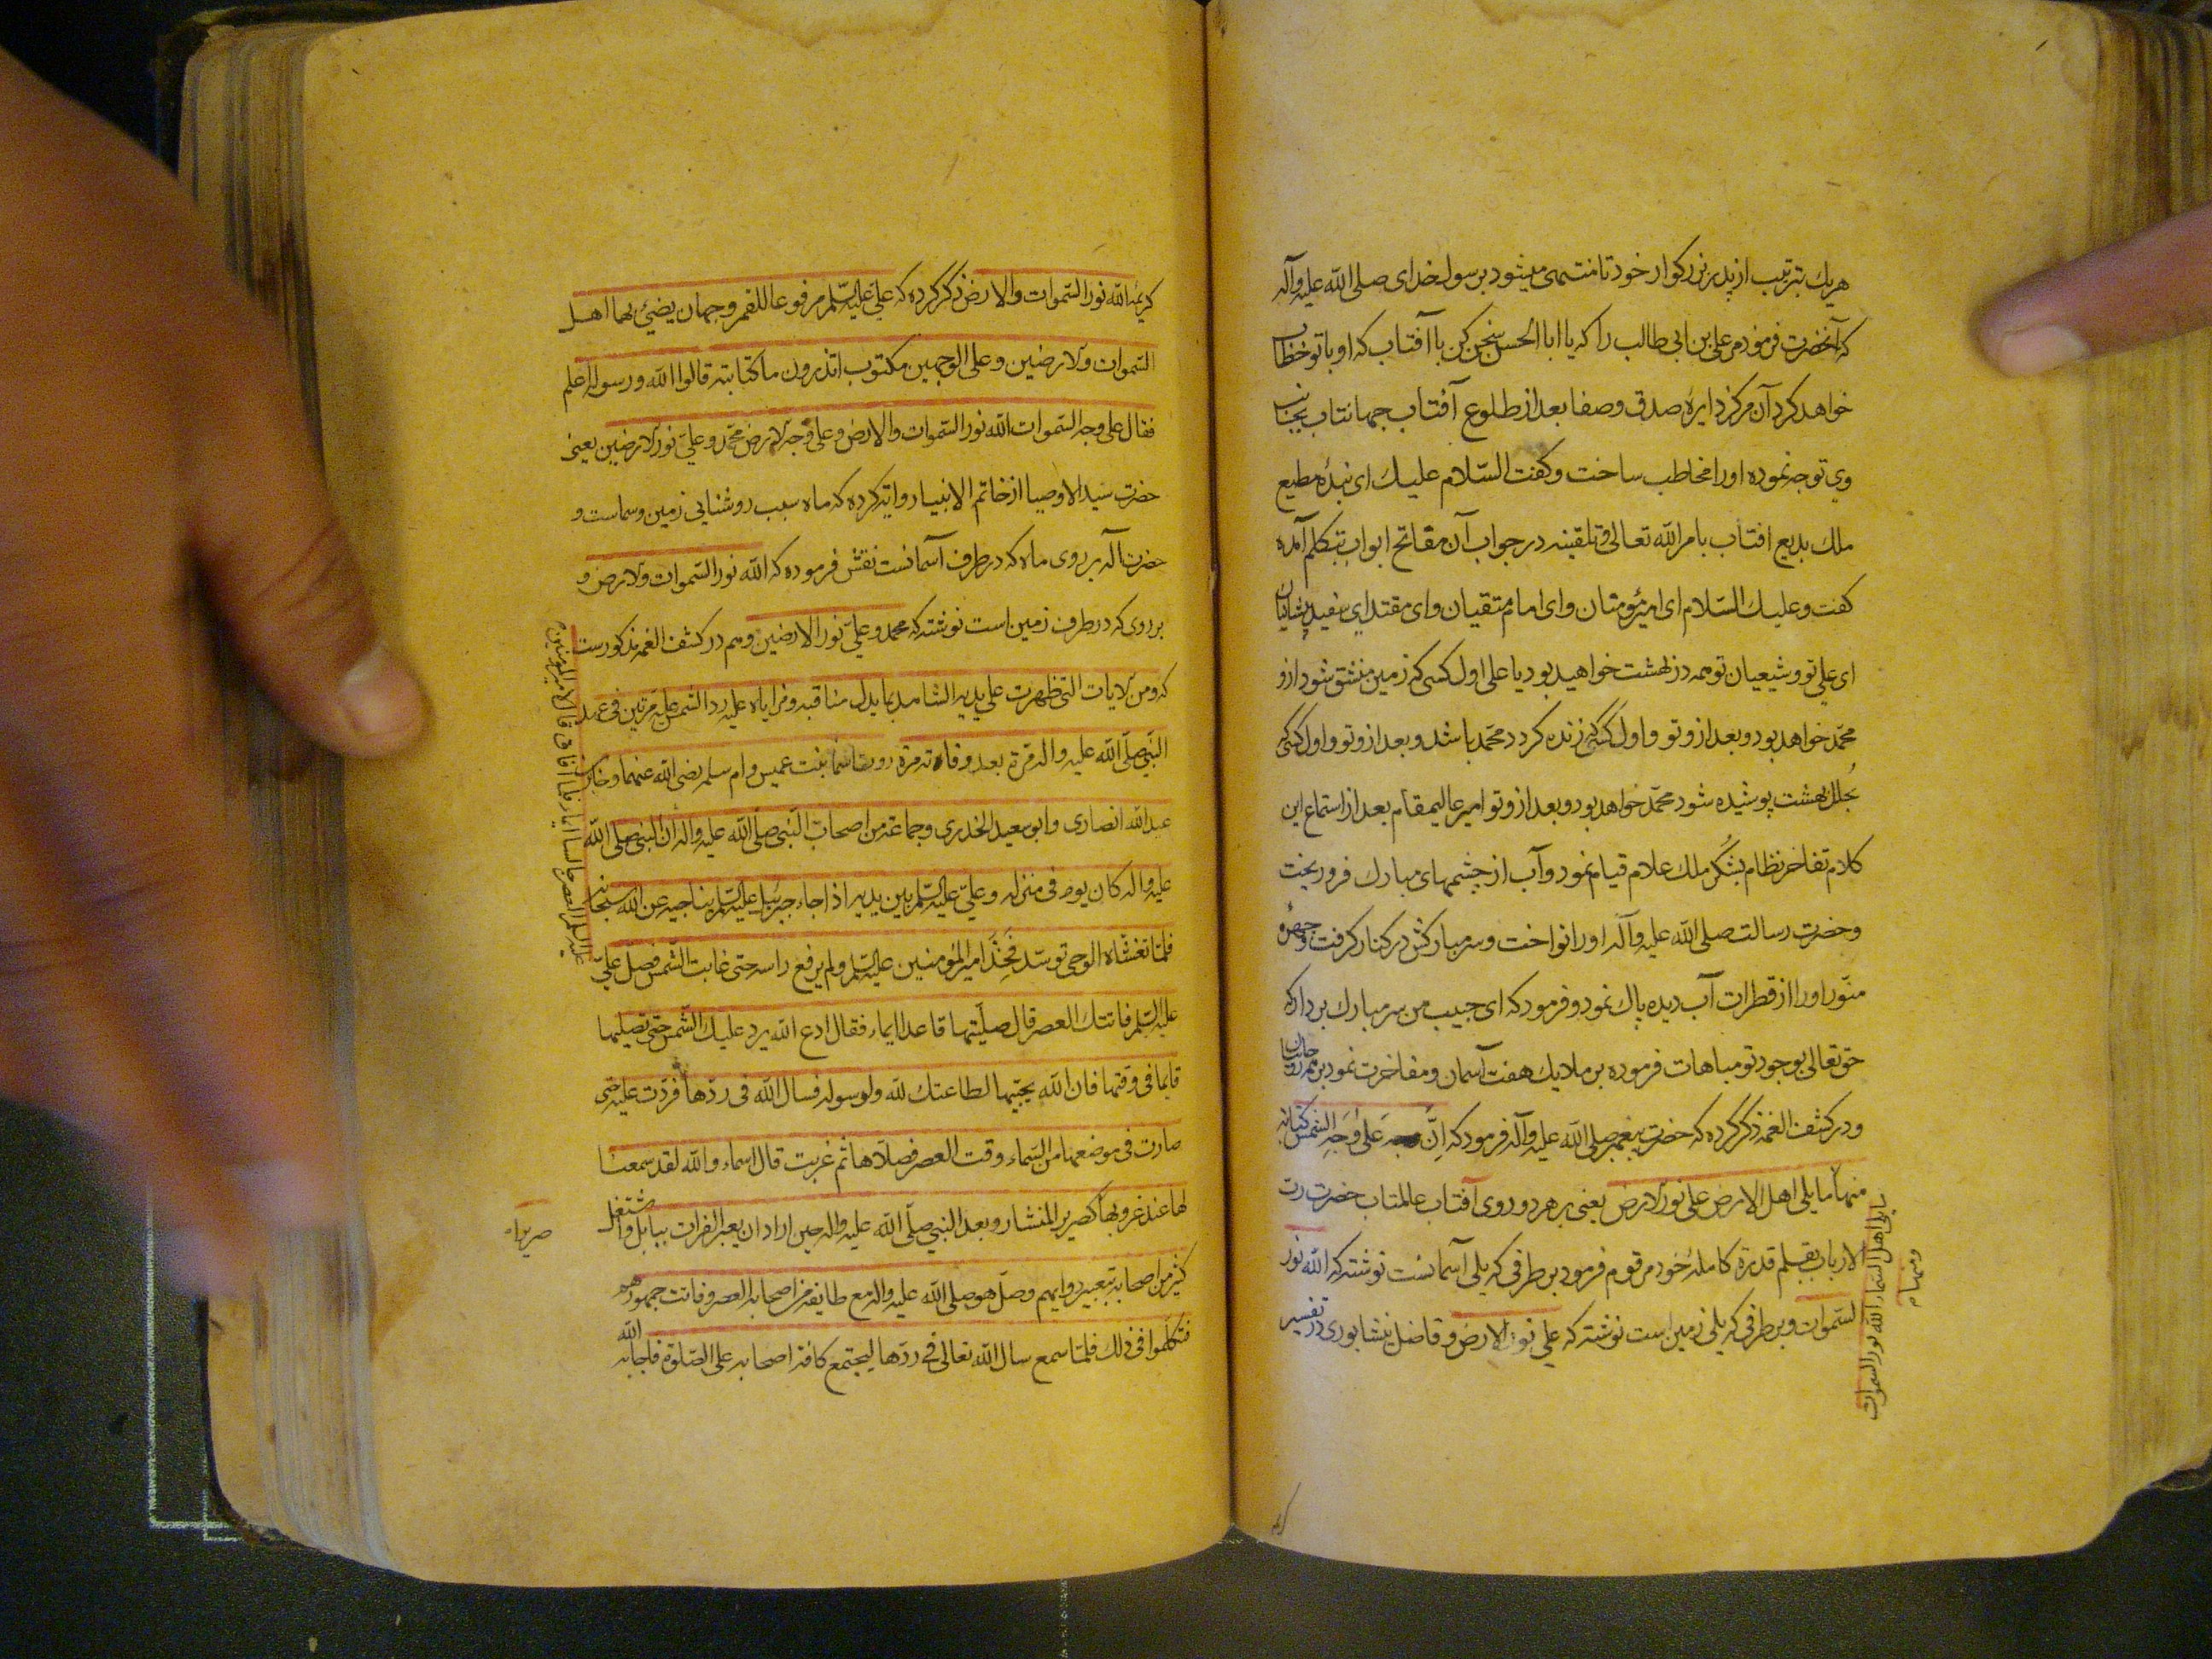 هریك بترتیب از پدر بزرکوار خود تا منتهی میشود برسول خدای صلی الله علیه وآله
که آنحضرت فرمود مر علی بن ابی طالب را که یا ابا الحسن سخن کن با آفتاب که او با تو خطاب
خواهد کرد آن مرکز دایرهٔ صدق وصفا بعد از طلوع آفتاب جهانتاب بجانب
وی توجه نموده اورا مخاطب ساخت وکفت السّلام علیك ای بندهٔ مطیع
ملك بدیع افتاب بامر الله تعالی وتلقینه در جواب آن مفاتح ابواب بتکلم آمده
کفت وعلیك السّلام ای امیر مؤمنان وای امام متقیان وای مقتدای سفید پیشانیان
ای علی تو وشیعیان تو همه در بهشت خواهید بود یا علی اول کسی که زمین منشق شود ازو
محمّد خواهد بود وبعد ازو تو و اول کسی که زنده کردد محمّد باشد وبعد ازو تو واول کسی که
بحلل بهشت پوشیده شود محمّد خواهد بود وبعد ازو تو امیر عالیمقام بعد از استماع این
کلام تفاخر نظام بشکر ملك علام قیام نمود وآب از چشمهای مبارك فرو ریخت
وحضرت رسالت صلی الله علیه وآله اورا نواخت وسر مبارکش در کنار کرفت وچهرهٔ
منوّر اورا از قطرات آب دیده پاك نمود وفرمود که ای حبیب من سر مبارك بردار که
حقّ تعالی بوجود تو مباهات فرموده بر ملایك هفت آسمان ومفاخرت نمود بر همه روحانیان
ودر کشف الغمه ذکر کرده که حضرت پیغمبر صلی الله علیه وآله فرمود که اِنَّ علی وَجهِ الشمس کتابة
منها ما یلی اهل الارض علی نور الارض یعنی بر هر دو روی آفتاب عالمتاب حضرت رب
الارباب بقلم قدرة کاملهٔ خود مرقوم فرمود بر طرفی که یلی آسمانست نوشته که الله نور
السّموات وبر طرفی که یلی زمین است نوشته که علی نور الارض و فاضل نیشابوری در تفسیر
یلی اهل السّماء الله نور السموات
ومنها م
کریمهٔ الله نور السّموات والارض ذکر کرده که علیّ علیه السّلم مرفوعا للقمر وجهان یضیٔ بهما اهل
السّموات والارضین وعلی الوجهین مکتوب اتدرون ما کتابته قالوا الله ورسوله اعلم
فقال علی وجه السّموات الله نور السّموات والارض وعلی وجه الارض محمّد وعلیّ نور الارضین یعنی
حضرت سید الاوصیا از خاتم الانبیا روایة کرده که ماه سبب روشنایی زمین وسماست و
حضرت اله بر روی ماه که در طرف آسمانست نقش فرموده که الله نور السّموات والارض و
بر روی که در طرف زمین است نوشته که محمد وعلیّ نور الارضین وهم در کشف الغمه مذکورست
که ومن الایات التی ظهرت علی یدیه الشاهد بما یدل مناقبه ومزایاه علیه ردّ الشمس علیه مرّتین فی عهد
النّبیّ صلّی الله علیه واله مرّة بعد وفاته مرة روت اسما بنت عمیس وام سلمه رضی الله عنهما وجابر بن
عبد الله انصاری وابو سعید الخدری وجماعة من اصحاب النّبی صلّی الله علیه واله ان النبی صلی الله
علیه واله کان یوم فی منزله وعلیّ علیه السّلم بین یدیه اذا جاء جبرئیل علیه السّلم یناجیه عن الله سبحانه
فلمّا تغشّاه الوحی توسّد فخذ امیر المؤمنین علیه السّلم ولم یرفع راسه حتی غابت الشّمس فصلّ علیّ
علیه السّلم فاتتك العصر قال صلّیتها قاعدا ایماء فقال ادع الله یرد علیك الشّمس حتی تصلیها
قایما فی وقتها فان الله یجبّبها لطاعتك لله ولرسوله فسال الله فی ردّها فردّت علیه حتی
صارت فی موضعها من السّماء وقت العصر فصلّاها ثم غربت قال اسماء والله لقد سمعنا
لها عند غروبها کصریر المنشار وبعد النبی صلّی الله علیه واله حین اراد ان یعبر الفرات ببابل واشتغل
کثیر من اصحابه بتعبیر دوابهم وصلّ هو صلی الله علیه واله مع طایفة من اصحابه العصر وفاتت جمهورهم
فتکلموا فی ذلك فلمّا سمع سال الله تعالی فی ردّها لیجتمع کافة اصحابه علی الصّلوة فاجابه الله